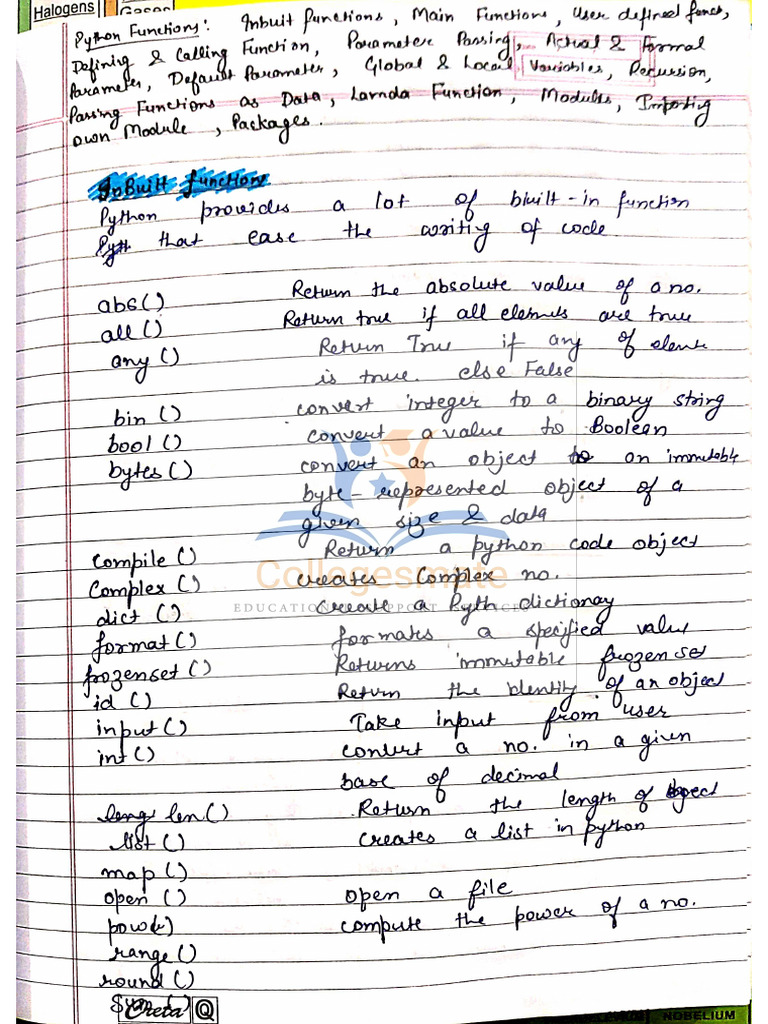 Halogens Gases
Python Functions: Inbuit functions, Main Functions, User defined funct,
Defining & Calling Function, Parameter Passing, Actual & Formal
Parameter, Default Parameter, Global & Local Variables, Recursion,
Passing Functions as Data, Lamda Function, Modules, Importing
own Module, Packages.
InBuilt functions
Python provides a lot of biuilt-in function
that ease the writing of code.
abs() Return the absolute value of a no.
all() Return true if all elements are true
any() Return True if any of elemnt
is true. else False
bin() convert integer to a binary string
bool() convert a value to Boolean
bytes() convert an object to an immutable
byte-represented object of a
given size & data
compile() Return a python code object
Complex() creates Complex no.
Collegesmate
dict() Create a Pyth dictionay
EDUCATION SUPPORT SERVICES
format() formates a specified value
frozenset() Returns immutable frozenset
id() Return the identity of an object
input() Take input from user
int() convert a no. in a given
base of decimal
leng len() Return the length of object
list() creates a list in python
map()
open() open a file
pow() compute the power of a no.
range()
round()
Sum()
Creta Q
NOBELIUM